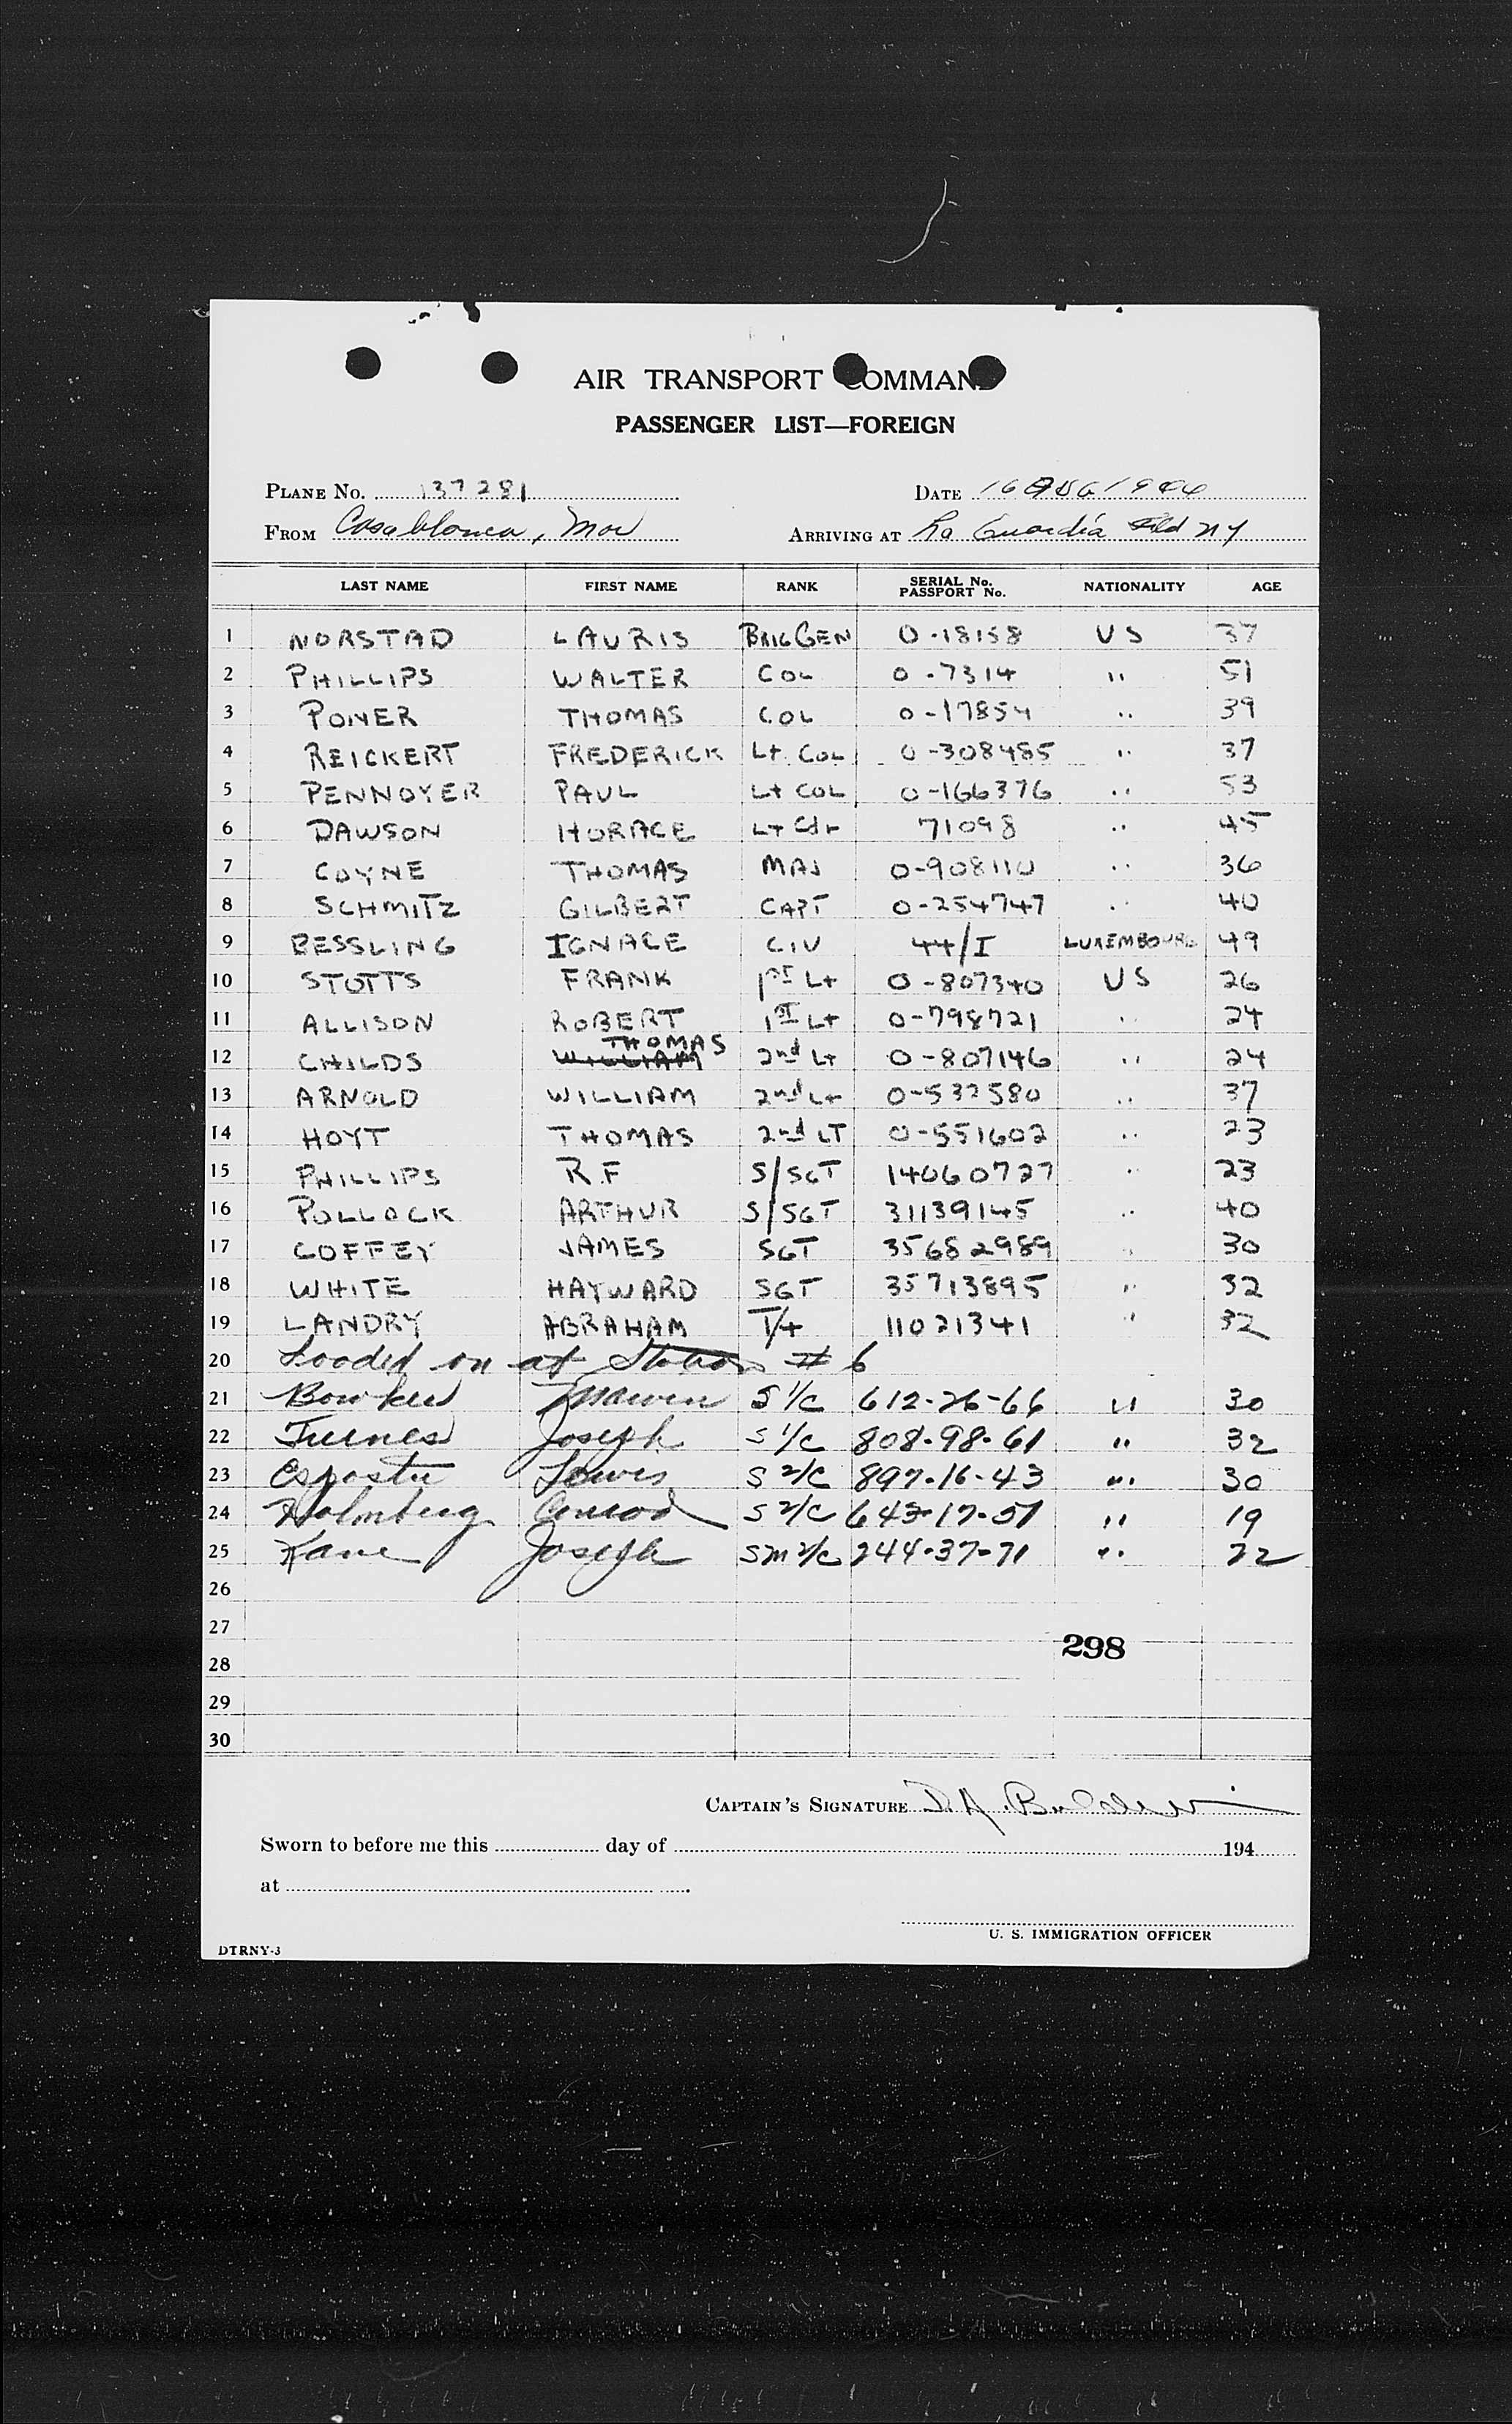 AIR TRANSPORT COMMAND
PASSENGER LIST—FOREIGN
PLANE No. 137281 DATE 16 AUG 1944
FROM Casablanca, Mor ARRIVING AT La Guardia Field NY
LAST NAME FIRST NAME RANK SERIAL No. PASSPORT No. NATIONALITY AGE
1 NORSTAD LAURIS BRIG GEN O-18158 US 37
2 PHILLIPS WALTER COL O-7314 " 51
3 PONER THOMAS COL O-17854 " 39
4 REICKERT FREDERICK Lt. COL O-308485 " 37
5 PENNOYER PAUL Lt COL O-166376 " 53
6 DAWSON HORACE Lt Cdr 71098 " 45
7 COYNE THOMAS MAJ O-908110 " 36
8 SCHMITZ GILBERT CAPT O-254747 " 40
9 BESSLING IGNACE CIV 44/I LUXEMBOURG 49
10 STOTTS FRANK 1ST Lt O-807340 US 26
11 ALLISON ROBERT 1ST Lt O-798721 " 24
12 CHILDS WILLIAM THOMAS 2nd Lt O-807146 " 24
13 ARNOLD WILLIAM 2nd Lt O-532580 " 37
14 HOYT THOMAS 2nd LT O-551602 " 23
15 PHILLIPS R.F S/SGT 14060727 " 23
16 POLLOCK ARTHUR S/SGT 31139145 " 40
17 COFFEY JAMES SGT 35682989 " 30
18 WHITE HAYWARD SGT 35713895 " 32
19 LANDRY ABRAHAM T/4 11021341 " 32
20 Loaded on at Station # 6
21 S 1/C 612-26-66 " 30
22 Joseph S 1/C 808-98-61 " 32
23 Louis S 2/C 897-16-43 " 30
24 Holmberg Conrad S 2/C 643-17-51 " 19
25 Kane Joseph SM 2/C 244-37-71 " 22
26
27
298
28
29
30
CAPTAIN'S SIGNATURE
Sworn to before me this day of 194
at
U. S. IMMIGRATION OFFICER
DTRNY-3